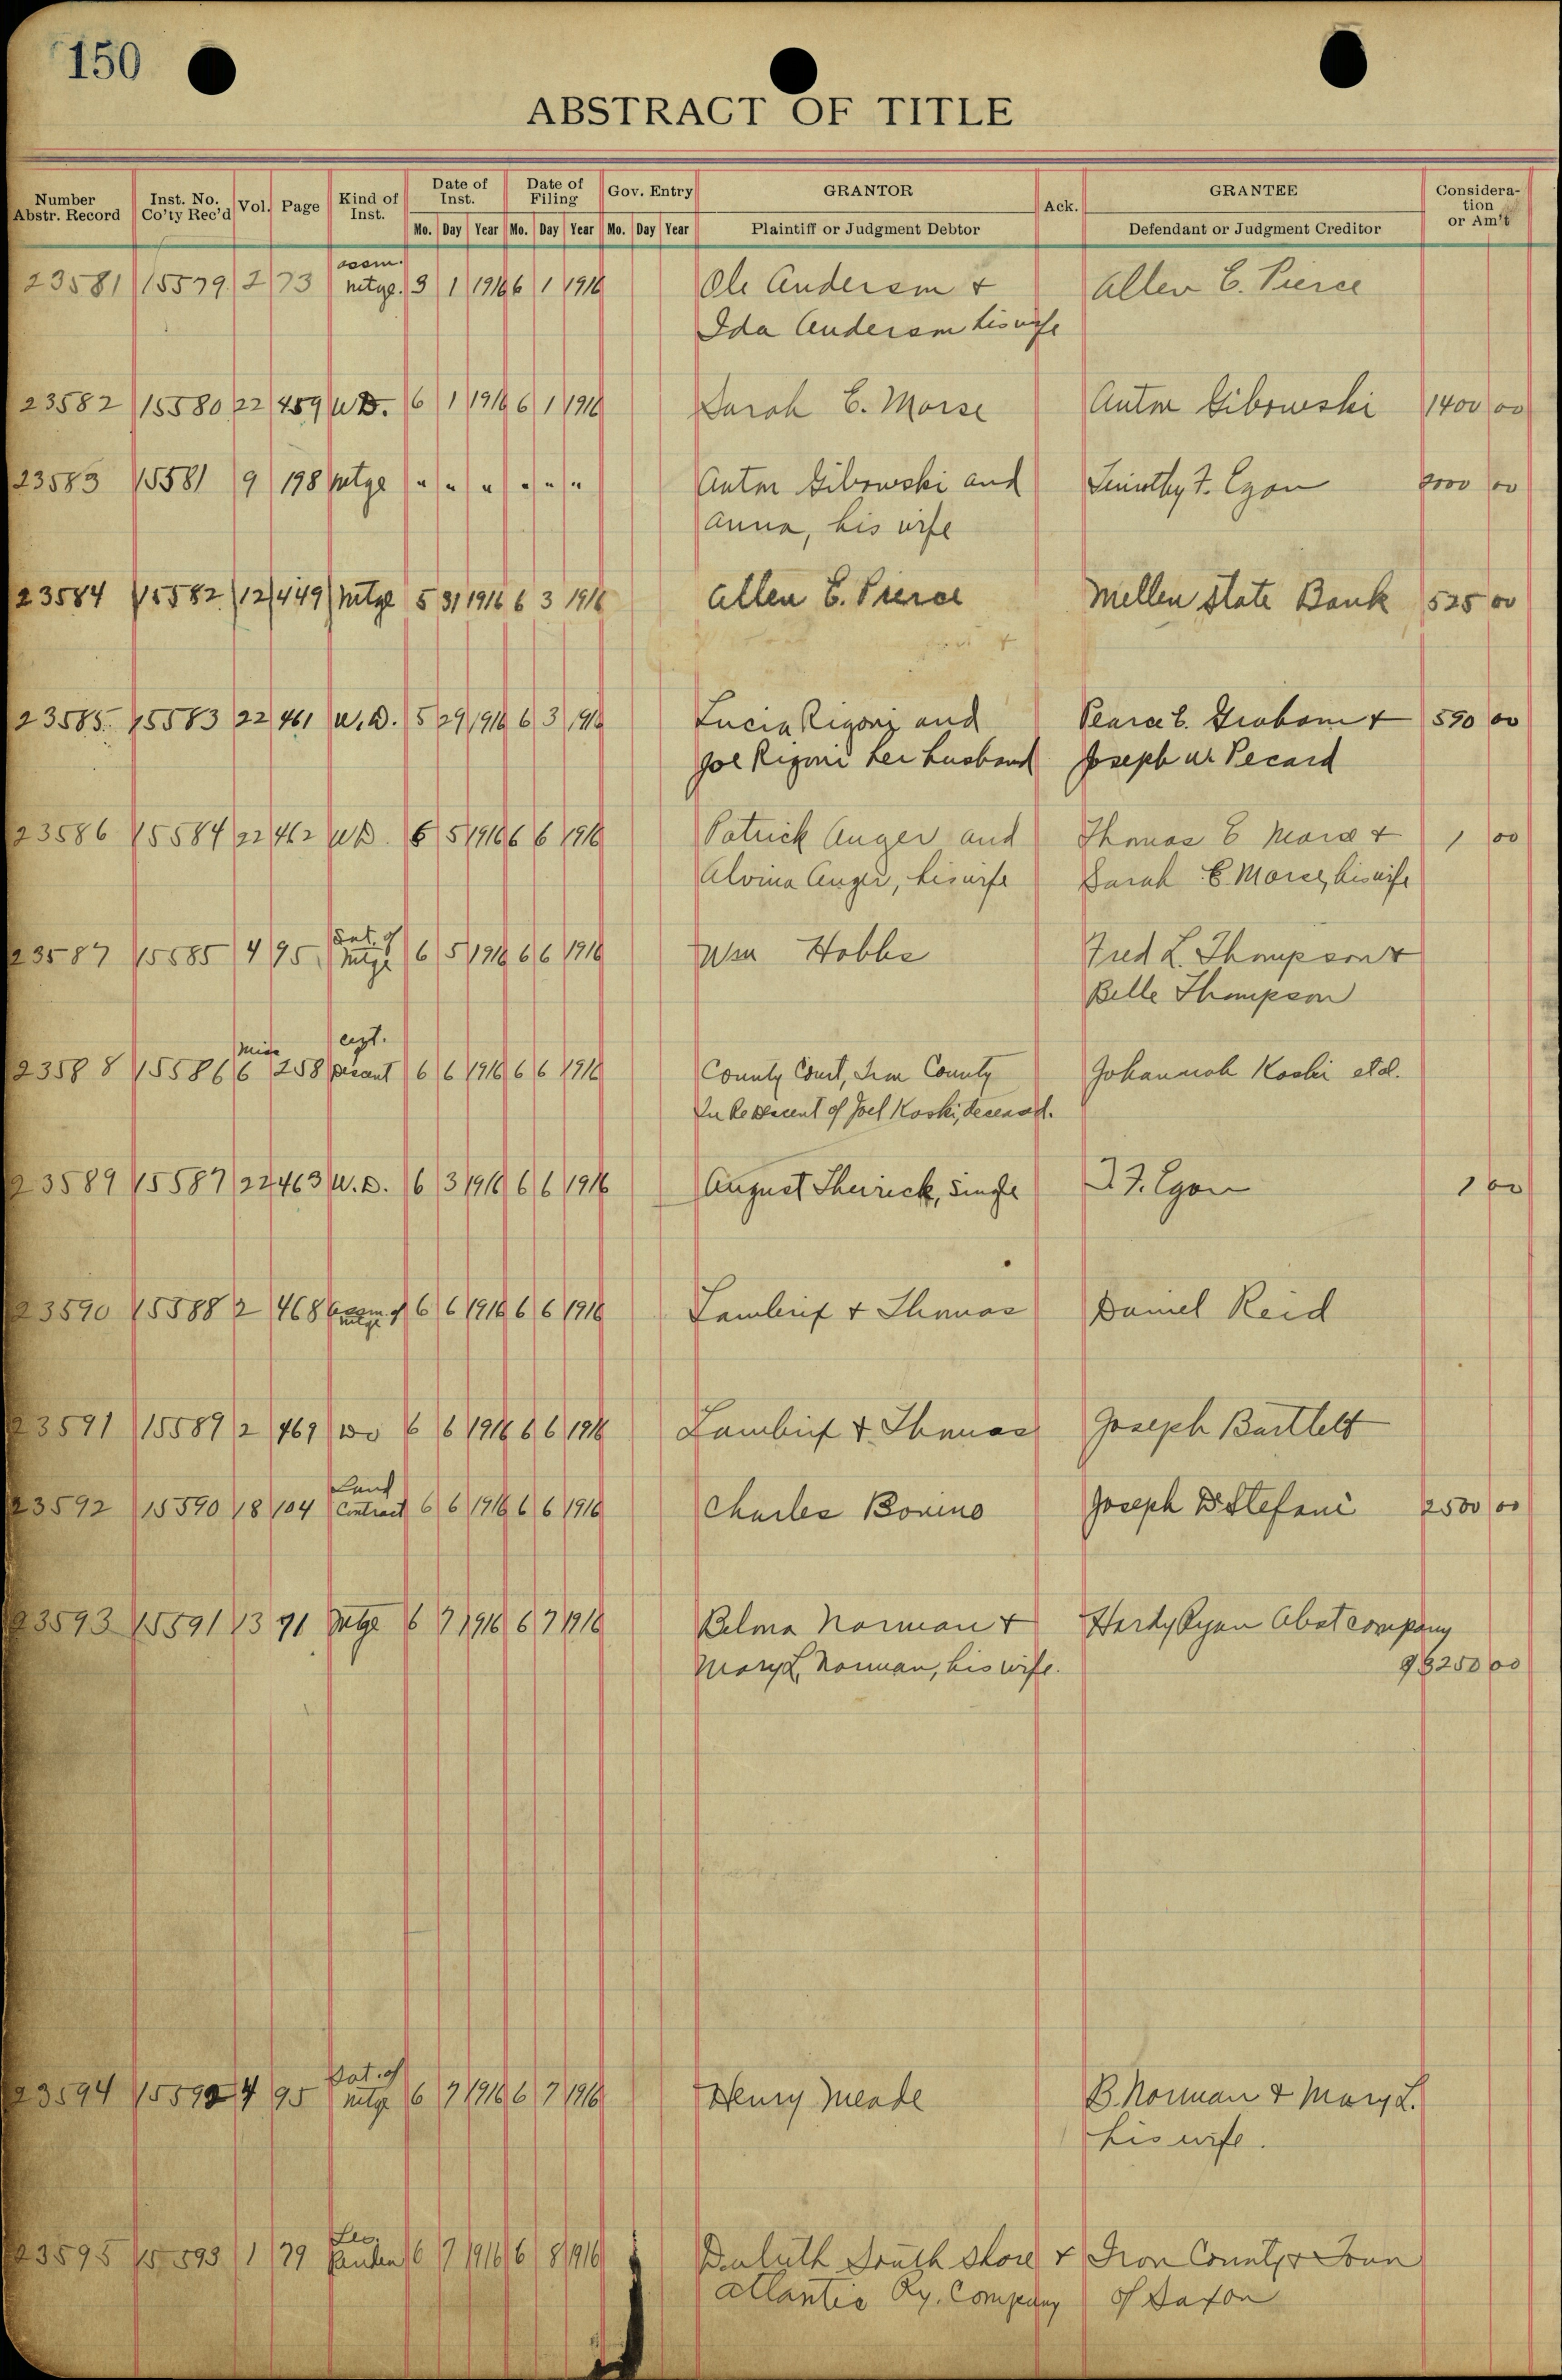 150
ABSTRACT OF TITLE
Number Abstr. Record | Inst. No. Co'ty Rec'd | Vol. | Page | Kind of Inst. | Date of Inst. Mo. Day Year | Date of Filing Mo. Day Year | Gov. Entry Mo. Day Year | GRANTOR Plaintiff or Judgment Debtor | Ack. | GRANTEE Defendant or Judgment Creditor | Consideration or Am't
assm.
23581 15579 2 73 mtge. 3 1 1916 6 1 1916 Ole Anderson & Allen E. Pierce
Ida Anderson his wife
23582 15580 22 459 W.D. 6 1 1916 6 1 1916 Sarah E. Morse Anton Gibowski 1400 00
23583 15581 9 198 mtge " " " " " " Anton Gibowski and Timothy F. Egan 00
Anna, his wife
23584 15582 12 449 Mtge 5 31 1916 6 3 1916 Allen E. Pierce Mellen State Bank 525 00
23585 15583 22 461 W.D. 5 29 1916 6 3 1916 Lucia Rigoni and Pearce E. Graham & 590 00
Joe Rigoni her husband Joseph W. Pecard
23586 15584 22 462 WD. 6 5 1916 6 6 1916 Patrick Auger and Thomas E Morse & 1 00
Alvina Auger, his wife Sarah E. Morse, his wife
Sat. of
23587 15585 4 95 Mtge 6 5 1916 6 6 1916 Wm Hobbs Fred L. Thompson &
Belle Thompson
Misc
23588 15586 6 258 Descent 6 6 1916 6 6 1916 County Court, Iron County Johannah Koski et al.
In Re Descent of Joel Koski, deceased.
23589 15587 22 463 W.D. 6 3 1916 6 6 1916 August Sherick, Single T. F. Egan 1 00
23590 15588 2 468 assm. of mtge 6 6 1916 6 6 1916 Lambrix & Thomas Daniel Reid
23591 15589 2 469 Do 6 6 1916 6 6 1916 Lambrix & Thomas Joseph Bartlett
Land
23592 15590 18 104 Contract 6 6 1916 6 6 1916 Charles Bonino Joseph DeStefani 2500 00
23593 15591 13 71 Mtge 6 7 1916 6 7 1916 Belma Norman & Hardy Ryan Abst company
Mary L. Norman, his wife. 250 00
Sat. of
23594 15592 4 95 mtge 6 7 1916 6 7 1916 Henry Meade B. Norman & Mary L.
his wife.
23595 15593 1 79 6 7 1916 6 8 1916 Duluth South Shore & Iron County & Town
Atlantic Ry. Company of Saxon